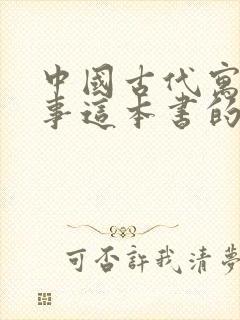 中國古代寓
事這本書的
可否許我清夢